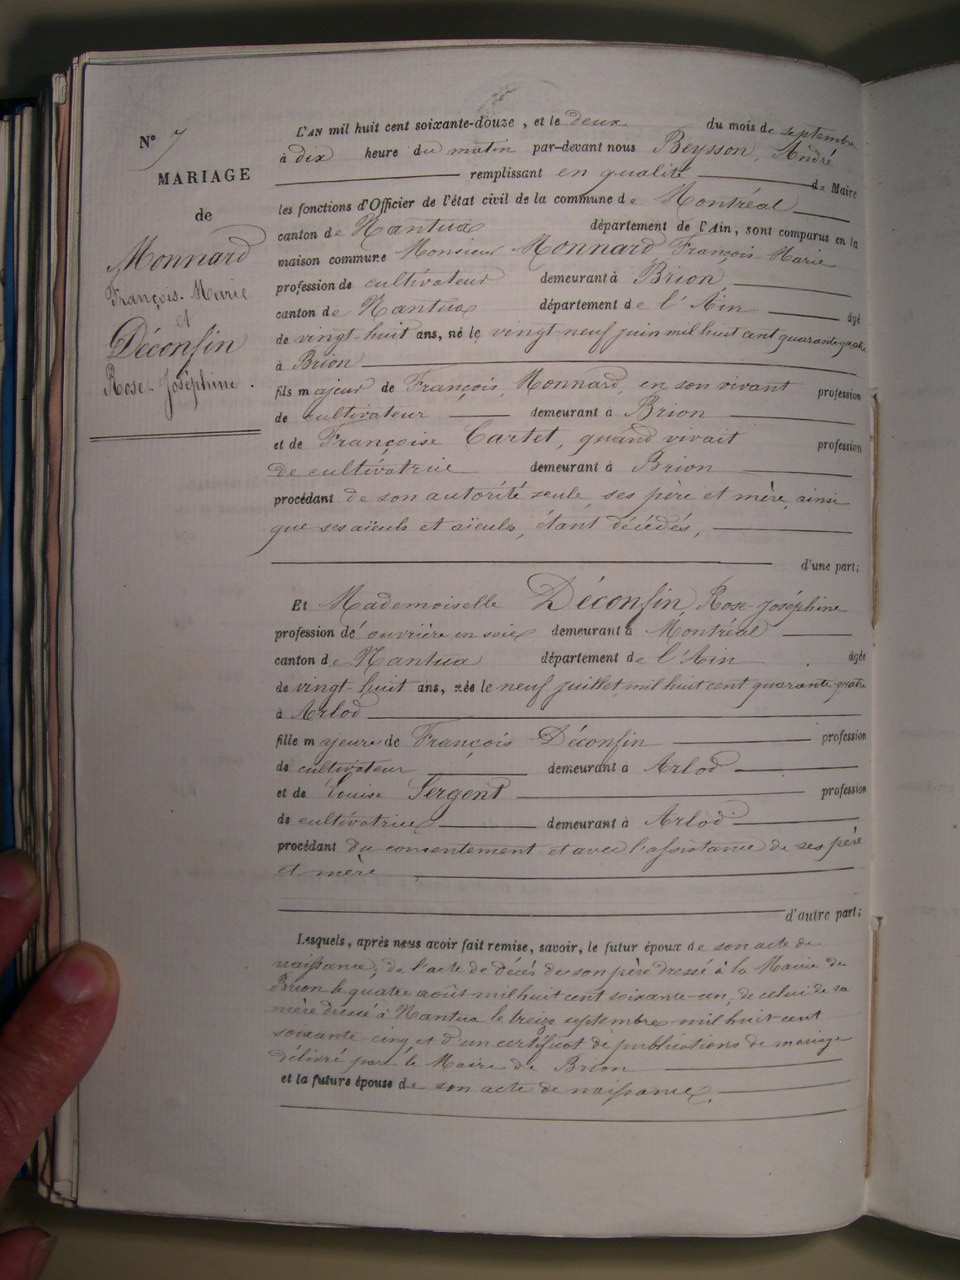 N° 7
MARIAGE
de
Monnard
François-Marie
et
Déconfin
Rose-Joséphine.
L'AN mil huit cent soixante-douze, et le deux du mois de septembre
à dix heure du matin par-devant nous Beysson, André
remplissant en qualité de Maire
les fonctions d'Officier de l'état civil de la commune de Montréal
canton de Nantua département de l'Ain, sont comparus en la
maison commune Monsieur Monnard François Marie
profession de cultivateur demeurant à Brion,
canton de Nantua département de l'Ain âgé
de vingt-huit ans, né le vingt-neuf juin mil huit cent quarante quatre
à Brion
fils majeur de François Monnard, en son vivant profession
de cultivateur demeurant à Brion
et de Françoise Cartet, quand vivait profession
de cultivatrice demeurant à Brion
procédant de son autorité seule, ses père et mère, ainsi
que ses aïeuls et aïeules, étant décédés,
d'une part;
Et Mademoiselle Déconfin Rose-Joséphine
profession de ouvrière en soie demeurant à Montréal
canton de Nantua département de l'Ain âgée
de vingt-huit ans, née le neuf juillet mil huit cent quarante-quatre
à Arlod
fille majeure de François Déconfin profession
de cultivateur demeurant à Arlod
et de Louise Sergent profession
de cultivatrice demeurant à Arlod
procédant du consentement et avec l'assistance de ses père
et mère
d'autre part;
Lesquels, après nous avoir fait remise, savoir, le futur époux de son acte de
naissance, de l'acte de décès de son père dressé à la Mairie de
Brion le quatre août mil huit cent soixante-un, de celui de sa
mère dressé à Nantua le treize septembre mil huit cent
soixante cinq et d'un certificat de publications de mariage
délivré par le Maire de Brion
et la future épouse de son acte de naissance.